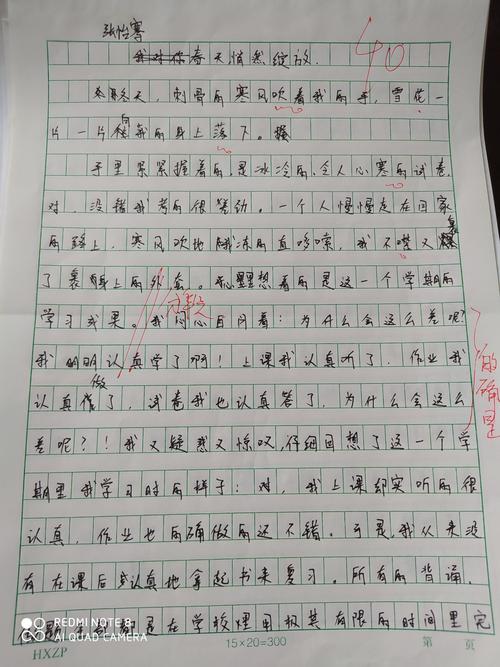 张怡骞
春天悄然绽放.
冬天，刺骨的寒风吹着我的手，雪花一
片一片向我的身上落下。
手里紧紧握着的，是冰冷的，令人心寒的试卷.
对，没错我考的很差劲。一个人慢慢走在回家
的路上，寒风吹地我冻的直哆嗦，我不禁又裹
了裹身上的外套。心里想着的是这一个学期的
学习成果。我问心自问着：为什么会这么差呢？
我明明认真学了啊！上课我认真听了，作业我
认真做了，试卷我也认真答了，为什么会这么
差呢？！我又疑惑又惊叹，仔细回想了这一个学
期里我学习时的样子：对，我上课却实听的很
认真，作业也的确做的还不错。可是，我从来没
有在课后认真地拿起书来复习。所有的背诵，
都是在学校里用极其有限的时间里完
40
成段
的确是
REDMI NOTE 8
AI QUAD CAMERA
HXZP
15×20=300
第 页